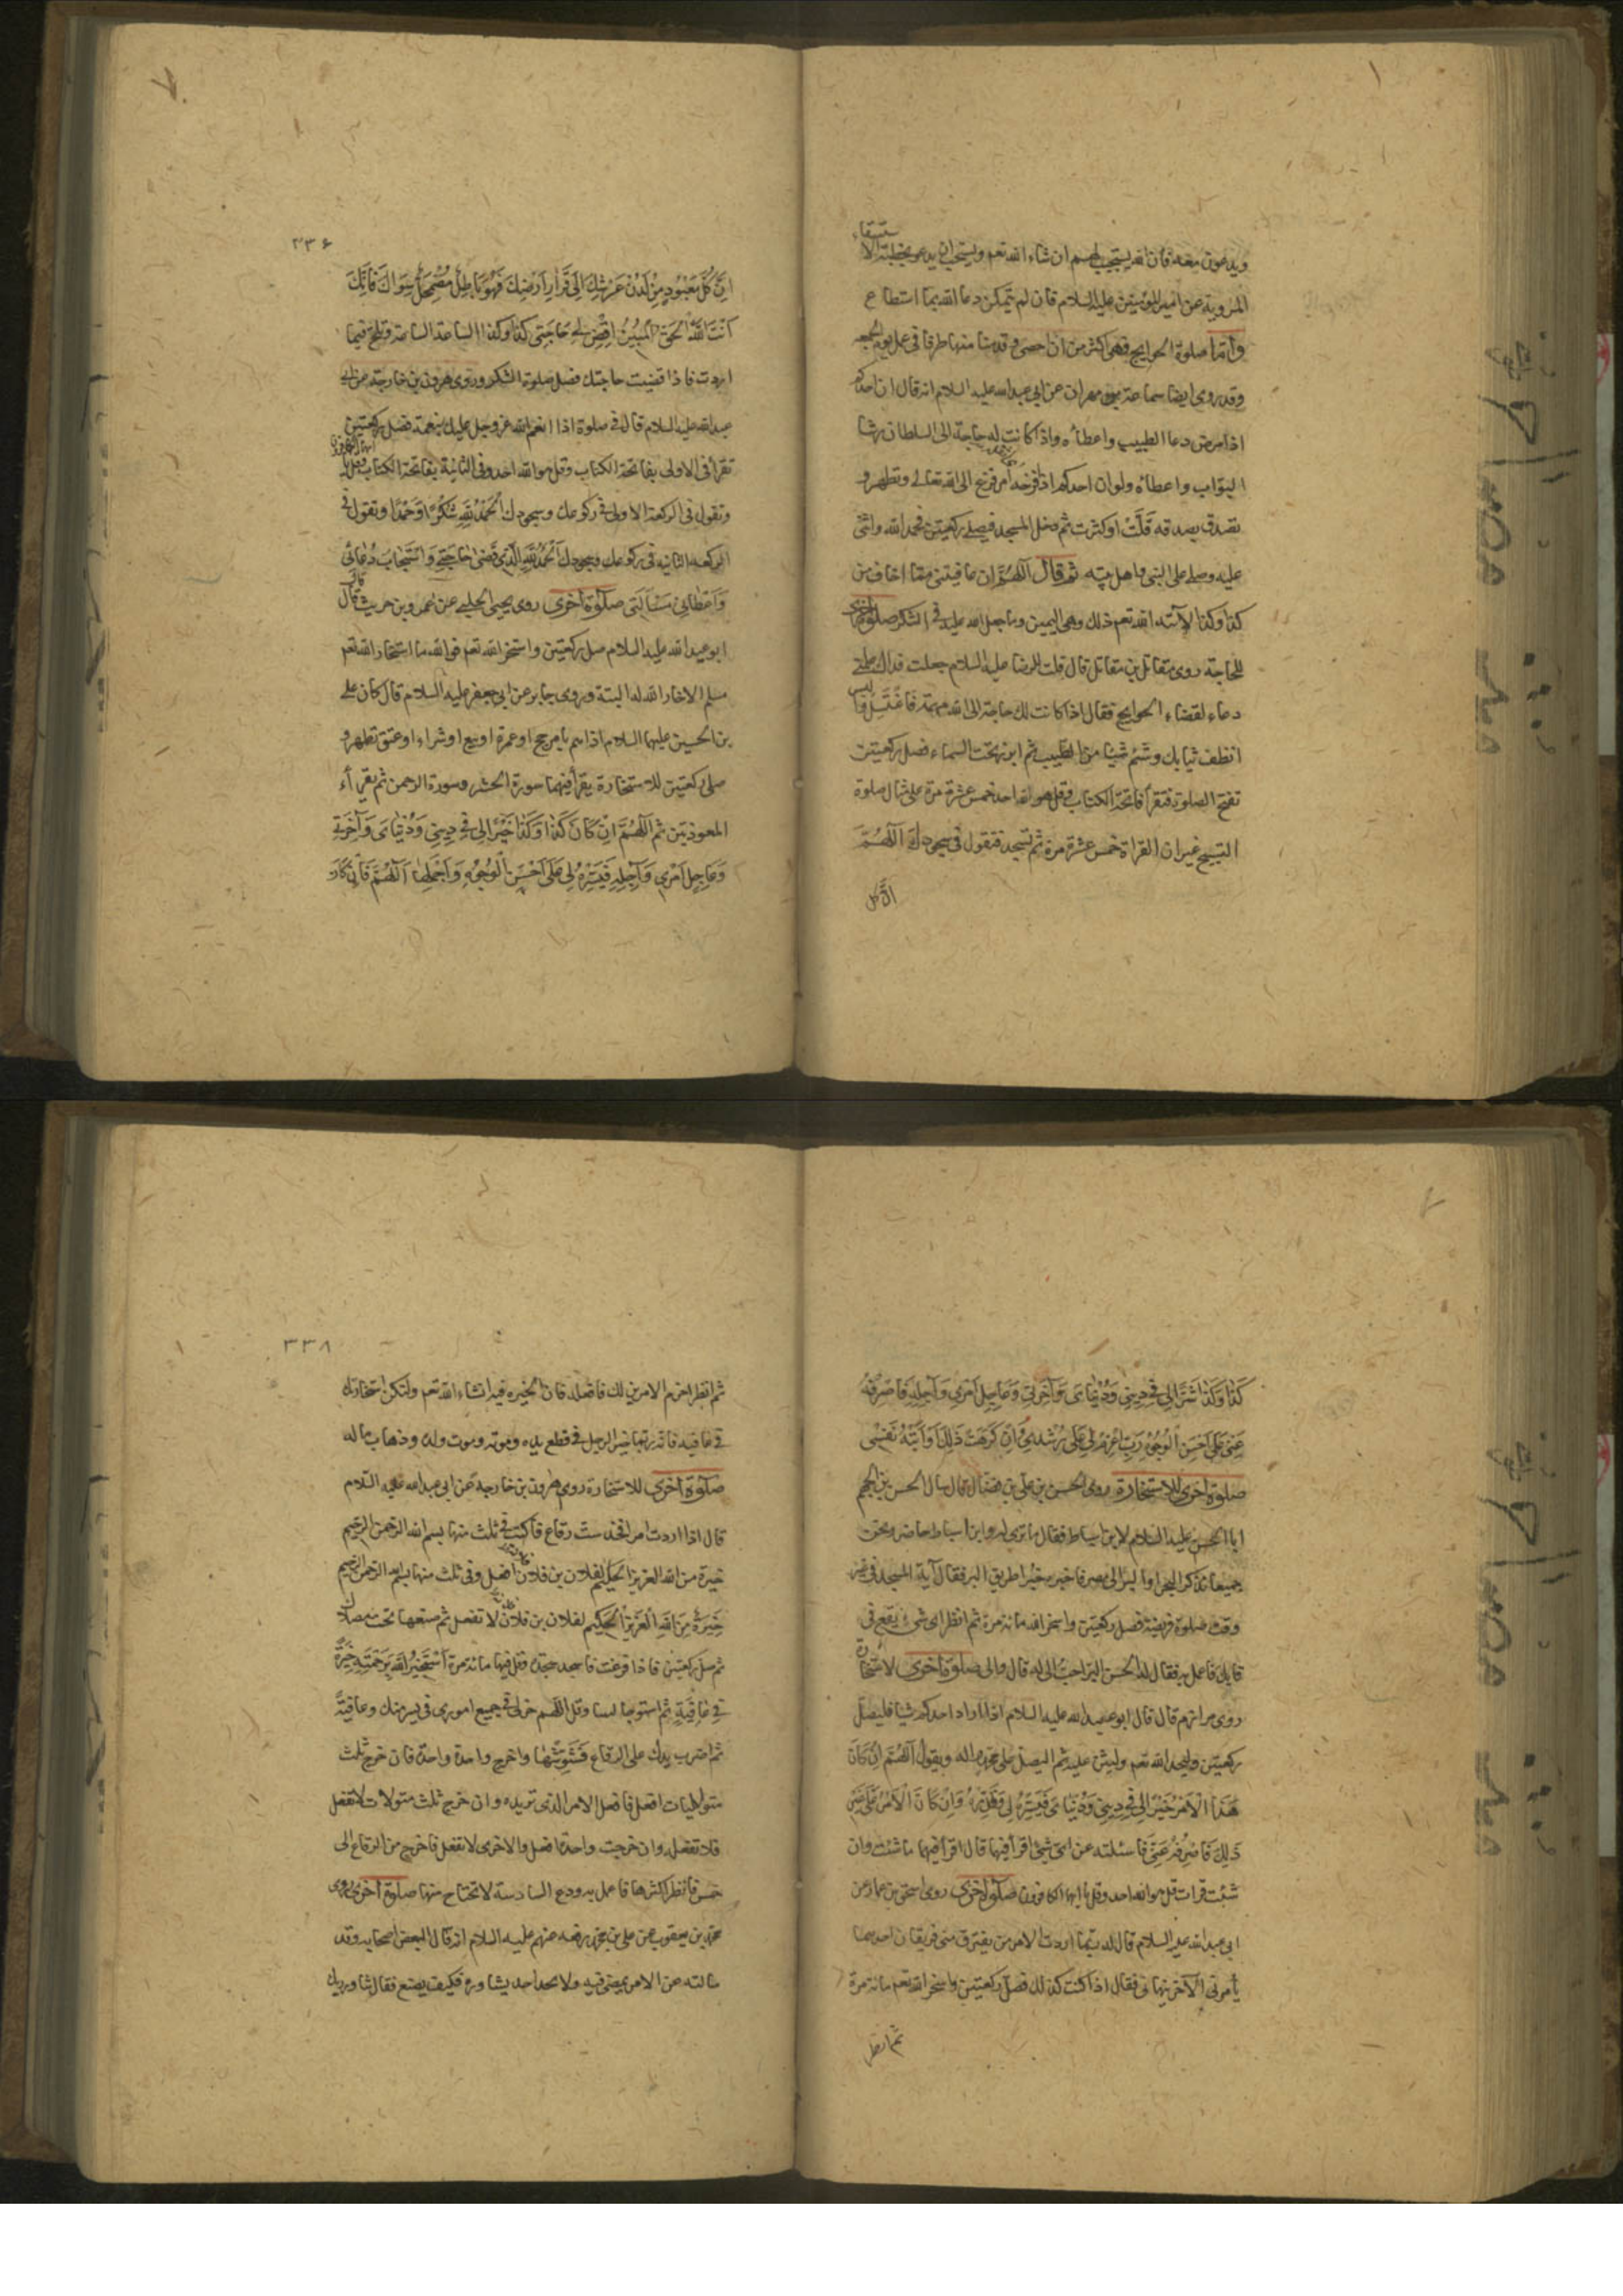 ويدعون معه فان الله يستجيب لهم ان شاء الله تعم ويستحب ان يدعو بخطبة الاستسقاء
المروية عن امير المؤمنين عليه السلام فان لم يتمكن دعا الله بما استطاع
وأما صلوة الحوايج فهي اكثر من ان احصى وقد منا منها طرفا في عمل يوم الجمعه
وقد روى ايضا سماعة بن مهران عن ابي عبد الله عليه السلام انه قال ان احدكم
اذا مرض دعا الطبيب واعطاه واذا كانت له حاجة الى السلطان رشا
البواب واعطاه ولو ان احدكم اذا فدحه امر فزع الى الله تعالى وتطهر و
تصدق بصدقه قلّت اوكثرت ثم دخل المسجد فيصلي ركعتين فحمد الله واثنى
عليه وصلى على النبي واهل بيته ثم قال اللهُمَّ ان عافيتني مما اخاف من
كذا وكذا لآتاه الله تعم ذلك وهي اليمين وما جعل الله عليه في الشكر صلوة اخرى
للحاجة روى مقاتل بن مقاتل قال قلت للرضا عليه السلام جعلت فداك علمني
دعاء لقضاء الحوايج فقال اذا كانت لك حاجة الى الله مهمة فاغتسل والبس
انظف ثيابك وشم شيئا من الطيب ثم ابرز تحت السماء فصل ركعتين
تفتح الصلوة فتقرأ فاتحة الكتاب وقل هو الله احد خمس عشرة مرة على مثال صلوة
التسبيح غير ان القراة خمس عشرة مرة ثم تسجد فتقول في سجودك اللهُمَّ
ان كل
٣٣۶
اِنَّ كُلَّ مَعْبُودٍ مِنْ لَدُنْ عَرْشِكَ اِلَى قَرَارِ اَرْضِكَ فَهُوَ بَاطِلٌ مُضْمَحِلٌّ سِوَاكَ فَاِنَّكَ
اَنْتَ اللهُ الْحَقُّ الْمُبِينُ اِقْضِ لِي حَاجَتِي كَذَا وَكَذَا الساعة الساعة وتلح فيما
اردت فاذا قضيت حاجتك فصل صلوة الشكر وروى هرون بن خارجة عن ابي
عبد الله عليه السلام قال في صلوة اذا انعم الله عز وجل عليك بنعمة فصل ركعتين
تقرأ في الاولى بفاتحة الكتاب وقل هو الله احد وفي الثانية بفاتحة الكتاب وقل يا ايها الكافرون
وتقول في الركعة الاولى في ركوعك وسجودك اَلْحَمْدُ لِلّهِ شُكْرًا وَحَمْدًا وتقول في
الركعه الثانيه في ركوعك وسجودك اَلْحَمْدُ لِلّهِ الَّذِي قَضى حَاجَتِي وَاسْتَجَابَ دُعَائِي
وَاَعْطَانِي مَسْاَلَتِي صلوة اخرى روى يحيى الحلبي عن عمرو بن حريث قال قال
ابو عبد الله عليه السلام صل ركعتين واستخر الله تعم فوالله ما استخار الله تعم
مسلم الا خار الله له البتة وروى جابر عن ابي جعفر عليه السلام قال كان علي
بن الحسين عليهما السلام اذا هم بامر حج او عمرة او بيع او شراء او عتق تطهر و
صلى ركعتين للاستخارة يقرأ فيهما سورة الحشر وسورة الرحمن ثم يقرأ
المعوذتين ثم اَللّهُمَّ اِنْ كَانَ كَذَا وَكَذَا خَيْرًا لِي فِي دِينِي وَدُنْيَايَ وَآخِرَتِي
وَعَاجِلِ اَمْرِي وَآجِلِهِ فَيَسِّرْهُ لِي عَلَى اَحْسَنِ الْوُجُوهِ وَاَجْمَلِهَا اَللّهُمَّ فَاِنْ كَانَ
كَذَا وَكَذَا شَرًّا لِي فِي دِينِي وَدُنْيَايَ وَآخِرَتِي وَعَاجِلِ اَمْرِي وَآجِلِهِ فَاصْرِفْهُ
عَنِّي عَلَى اَحْسَنِ الْوُجُوهِ رَبِّ اعْزِمْ لِي عَلَى رُشْدِي وَاِنْ كَرِهَتْ ذَلِكَ وَاَبَتْهُ نَفْسِي
صلوة اخرى للاستخارة روى الحسن بن علي بن فضال قال سال الحسن بن الجهم
ابا الحسن عليه السلام لابن اسباط فقال ما ترى له وابن اسباط حاضر ونحن
جميعا نذكر البحر او البر الى مصر فاخبره بخير طريق البر فقال آية المسجد في غير
وقت صلوة فريضة فصل ركعتين واستخر الله مائة مرة ثم انظر اى شيء يقع في
قلبك فاعمل به فقال له الحسن البر احب الى له قال والى صلوة اخرى لاستخارة
روى مرازم قال قال ابو عبد الله عليه السلام اذا اراد احدكم شيئا فليصل
ركعتين وليحمد الله تعم وليثن عليه ثم ليصل على محمد واله ويقول اَللّهُمَّ اِنْ كَانَ
هَذَا الْاَمْرُ خَيْرًا لِي فِي دِينِي وَدُنْيَايَ فَيَسِّرْهُ لِي وَقَدِّرْهُ وَاِنْ كَانَ الْاَمْرُ عَلَى غَيْرِ
ذَلِكَ فَاصْرِفْهُ عَنِّي فاسئلته عن اى شيئ اقرأ فيها قال اقرأ فيهما ما شئت وان
شئت قرات قل هو الله احد وقل يا ايها الكافرون صلوة اخرى روى اسحق بن عمار عن
ابي عبد الله عليه السلام قال له ربما اردت الامر من يفترق منى فريقان احدهما
يأمرني الآخر ينهاني فقال اذا كنت كذلك فصل ركعتين واستخر الله تعم مائة مرة
ثم انظر
٣٣٨
ثم انظر احزم الامرين لك فافعله فان الخيره فيه انشاء الله تعم ولتكن استخارتك
في عافيه فانه ربما خير للرجل في قطع يده وموته وموت ولده وذهاب ماله
صلوة اخرى للاستخارة روى هرون بن خارجة عن ابي عبد الله عليه السلام
قال اذا اردت امرا فخذ ست رقاع فاكتب في ثلث منها بسم الله الرحمن الرحيم
خيرة من الله العزيز الحكيم لفلان بن فلان افعل وفي ثلث منها بسم الله الرحمن الرحيم
خِيَرَةٌ مِنَ اللهِ الْعَزِيزِ الْحَكِيمِ لفلان بن فلان لا تفعل ثم ضعها تحت مصلاك
ثم صل ركعتين فاذا فرغت فاسجد سجدة وقل فيها مائة مرة اَسْتَخِيرُ اللهَ بِرَحْمَتِهِ خِيَرَةً
فِي عَافِيَةٍ ثم استو جالسا وقل اللهم خر لي في جميع اموري في يسر منك وعافيةً
ثم اضرب يدك على الرقاع فَشَوِّشْهَا واخرج واحدة واحدة فان خرج ثلث
متواليات افعل فافعل الامر الذى تريده وان خرج ثلث متواليات لا تفعل
فلا تفعله وان خرجت واحدة افعل والاخرى لا تفعل فاخرج من الرقاع الى
خمس فانظر اكثرها فاعمل به ودع السادسة لا تحتاج منها صلوة اخرى روى
محمد بن يعقوب عن علي بن محمد رفعه عنهم عليه السلام انه قال لبعض اصحابه وقد
سالته عن الامر يمضى فيه ولا يجد احد يشاوره فكيف يصنع فقال شاور ربك